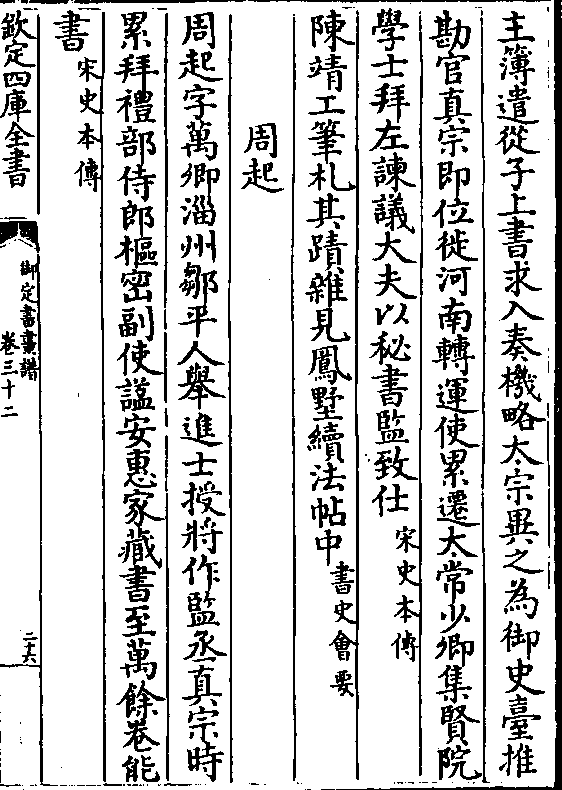 主簿遣從子上書求入奏機略太宗異之為御史臺推
勘官真宗即位徙河南轉運使累遷太常少卿集賢院
學士拜左諫議大夫以秘書監致仕宋史本傳
陳靖工筆札其蹟雜見鳳墅續法帖中書史會要
周起
周起字萬卿淄州鄒平人舉進士授將作監丞真宗時
累拜禮部侍郎樞密副使諡安惠家藏書至萬餘卷能
書宋史本傳
欽定四庫全書
御定書畫譜
卷三十二
二十六